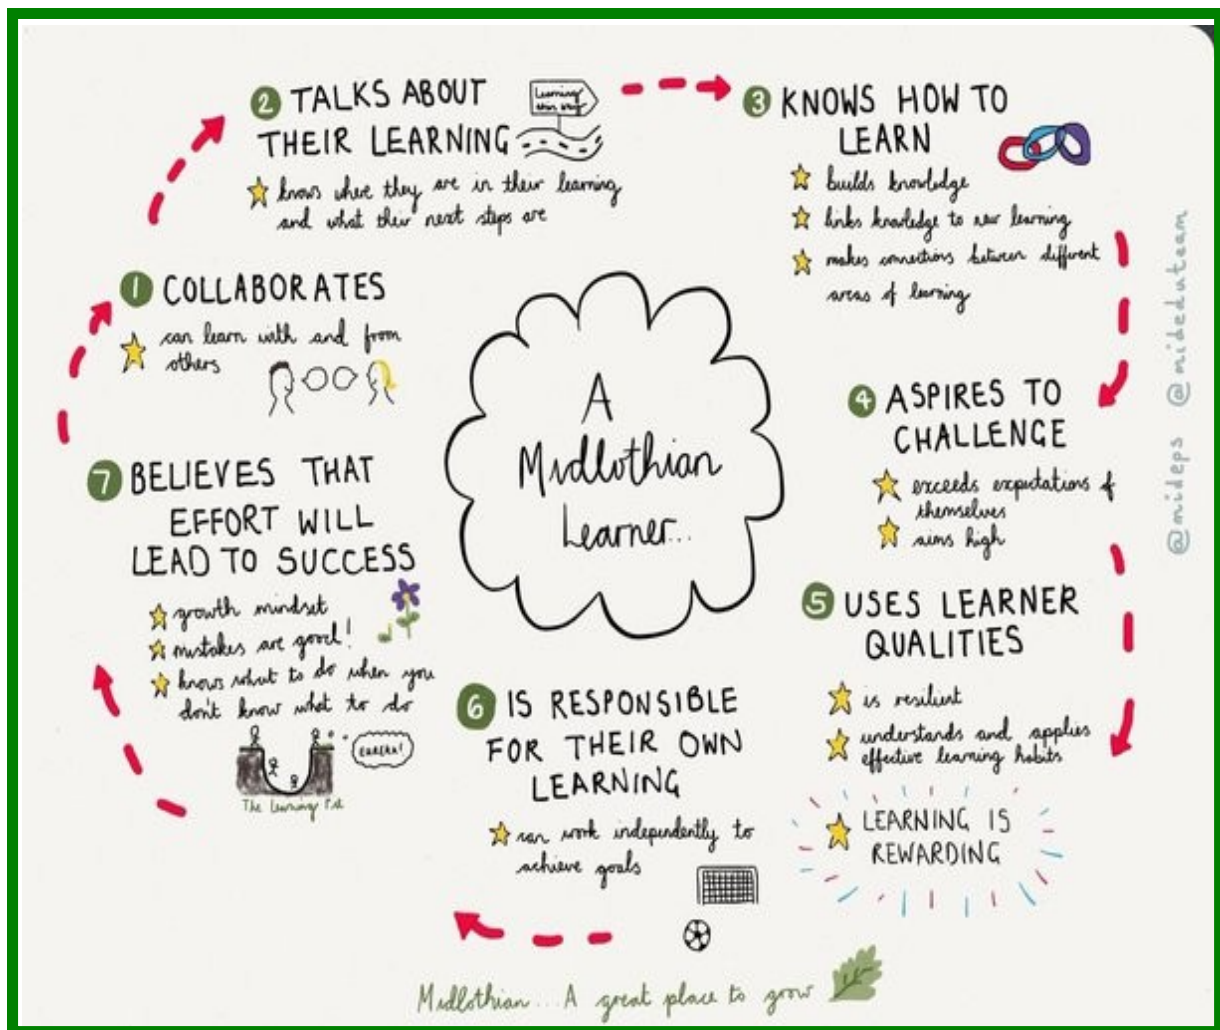 A
Midlothian
Learner...
1 COLLABORATES
can learn with and from
others
2 TALKS ABOUT
THEIR LEARNING
Learning
this way
knows where they are in their learning
and what their next steps are
3 KNOWS HOW TO
LEARN
builds knowledge
links knowledge to new learning
makes connections between different
areas of learning
4 ASPIRES TO
CHALLENGE
exceeds expectations of
themselves
aims high
5 USES LEARNER
QUALITIES
is resilient
understands and applies
effective learning habits
LEARNING IS
REWARDING
6 IS RESPONSIBLE
FOR THEIR OWN
LEARNING
can work independently to
achieve goals
7 BELIEVES THAT
EFFORT WILL
LEAD TO SUCCESS
growth mindset
mistakes are good!
knows what to do when you
don't know what to do
EUREKA!
The Learning Pit
Midlothian...A great place to grow
@mideps @mideduteam